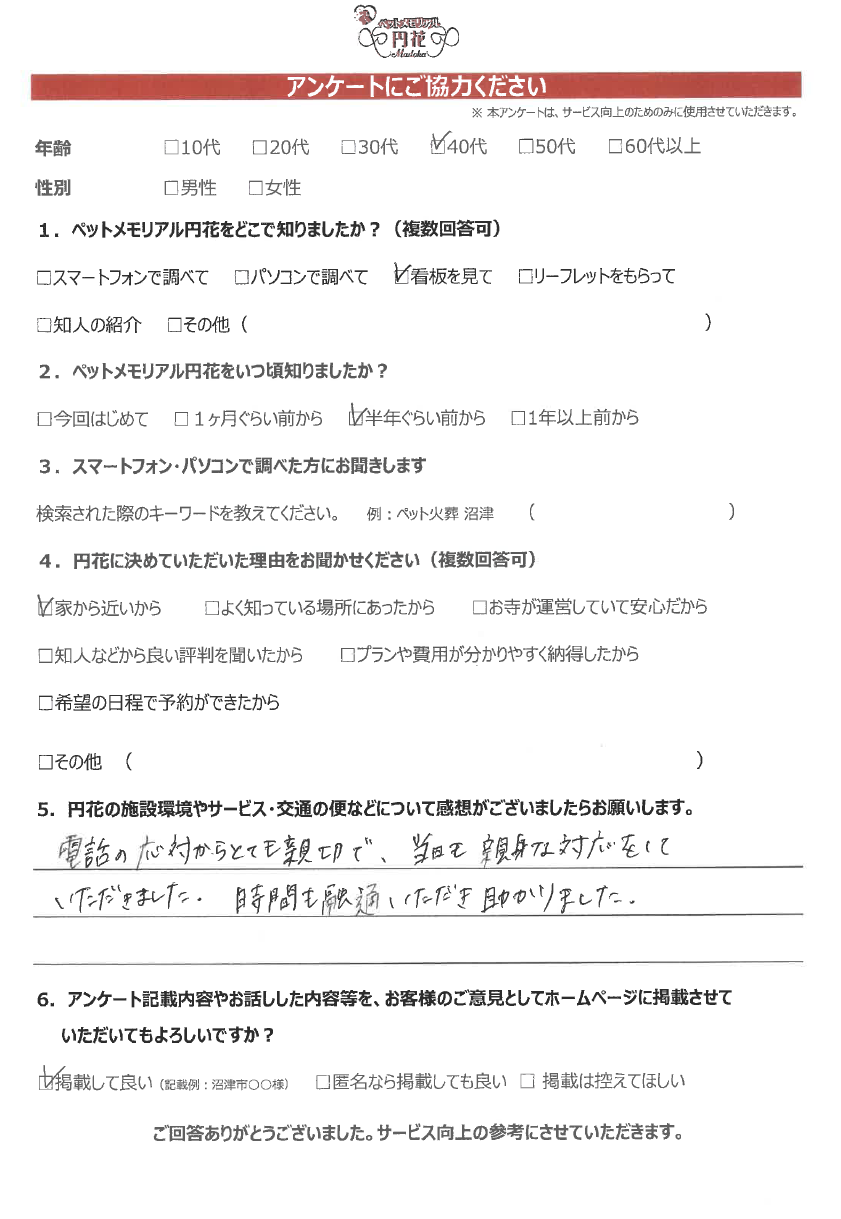 ペットメモリアル
円花
Madoka
アンケートにご協力ください
※ 本アンケートは、サービス向上のためのみに使用させていただきます。
年齢 □10代 □20代 □30代 ☑40代 □50代 □60代以上
性別 □男性 □女性
1．ペットメモリアル円花をどこで知りましたか？（複数回答可）
□スマートフォンで調べて □パソコンで調べて ☑看板を見て □リーフレットをもらって
□知人の紹介 □その他（ ）
2．ペットメモリアル円花をいつ頃知りましたか？
□今回はじめて □１ヶ月ぐらい前から ☑半年ぐらい前から □1年以上前から
3．スマートフォン・パソコンで調べた方にお聞きします
検索された際のキーワードを教えてください。 例：ペット火葬 沼津 （ ）
4．円花に決めていただいた理由をお聞かせください（複数回答可）
☑家から近いから □よく知っている場所にあったから □お寺が運営していて安心だから
□知人などから良い評判を聞いたから □プランや費用が分かりやすく納得したから
□希望の日程で予約ができたから
□その他 （ ）
5．円花の施設環境やサービス・交通の便などについて感想がございましたらお願いします。
電話の応対からとても親切で、当日も親身な対応をして
いただきました。時間も融通いただき助かりました。
6．アンケート記載内容やお話しした内容等を、お客様のご意見としてホームページに掲載させて
いただいてもよろしいですか？
☑掲載して良い（記載例：沼津市〇〇様） □匿名なら掲載しても良い □ 掲載は控えてほしい
ご回答ありがとうございました。サービス向上の参考にさせていただきます。